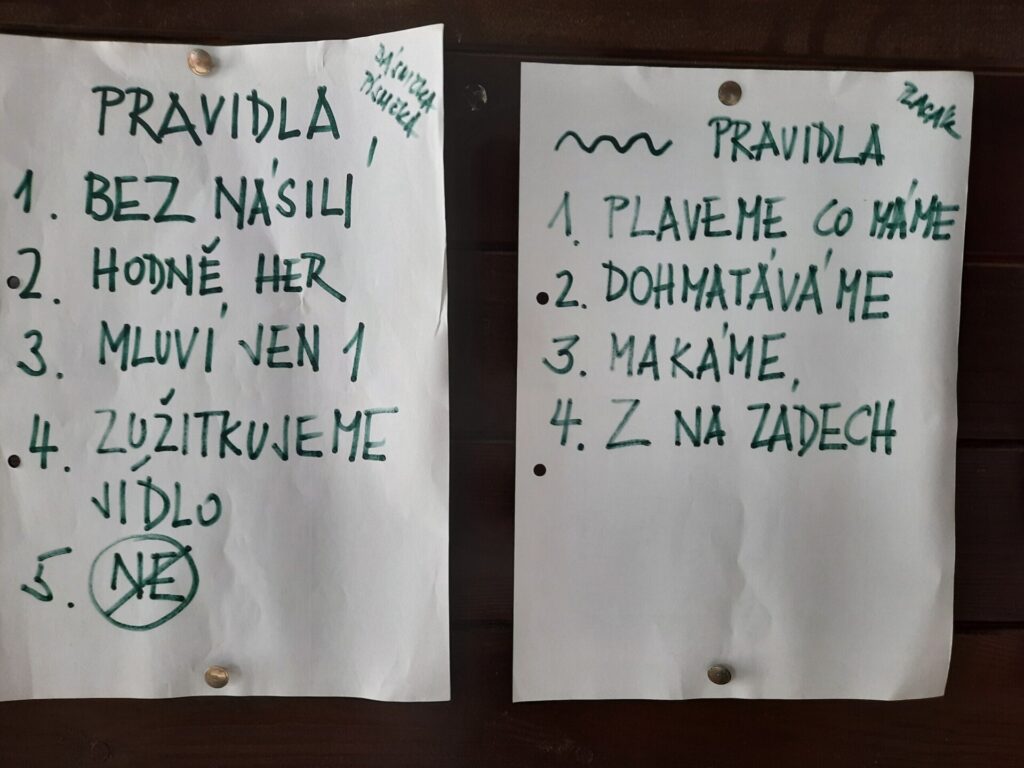 PRAVIDLA
BÁSNIČKA
PÍSMENA
1. BEZ NÁSILÍ
2. HODNĚ HER
3. MLUVÍ JEN 1
4. ZUŽITKUJEME
JÍDLO
5. NE
PRAVIDLA
1. PLAVEME CO MÁME
2. DOHMATÁVÁME
3. MAKÁME,
4. Z NA ZÁDECH